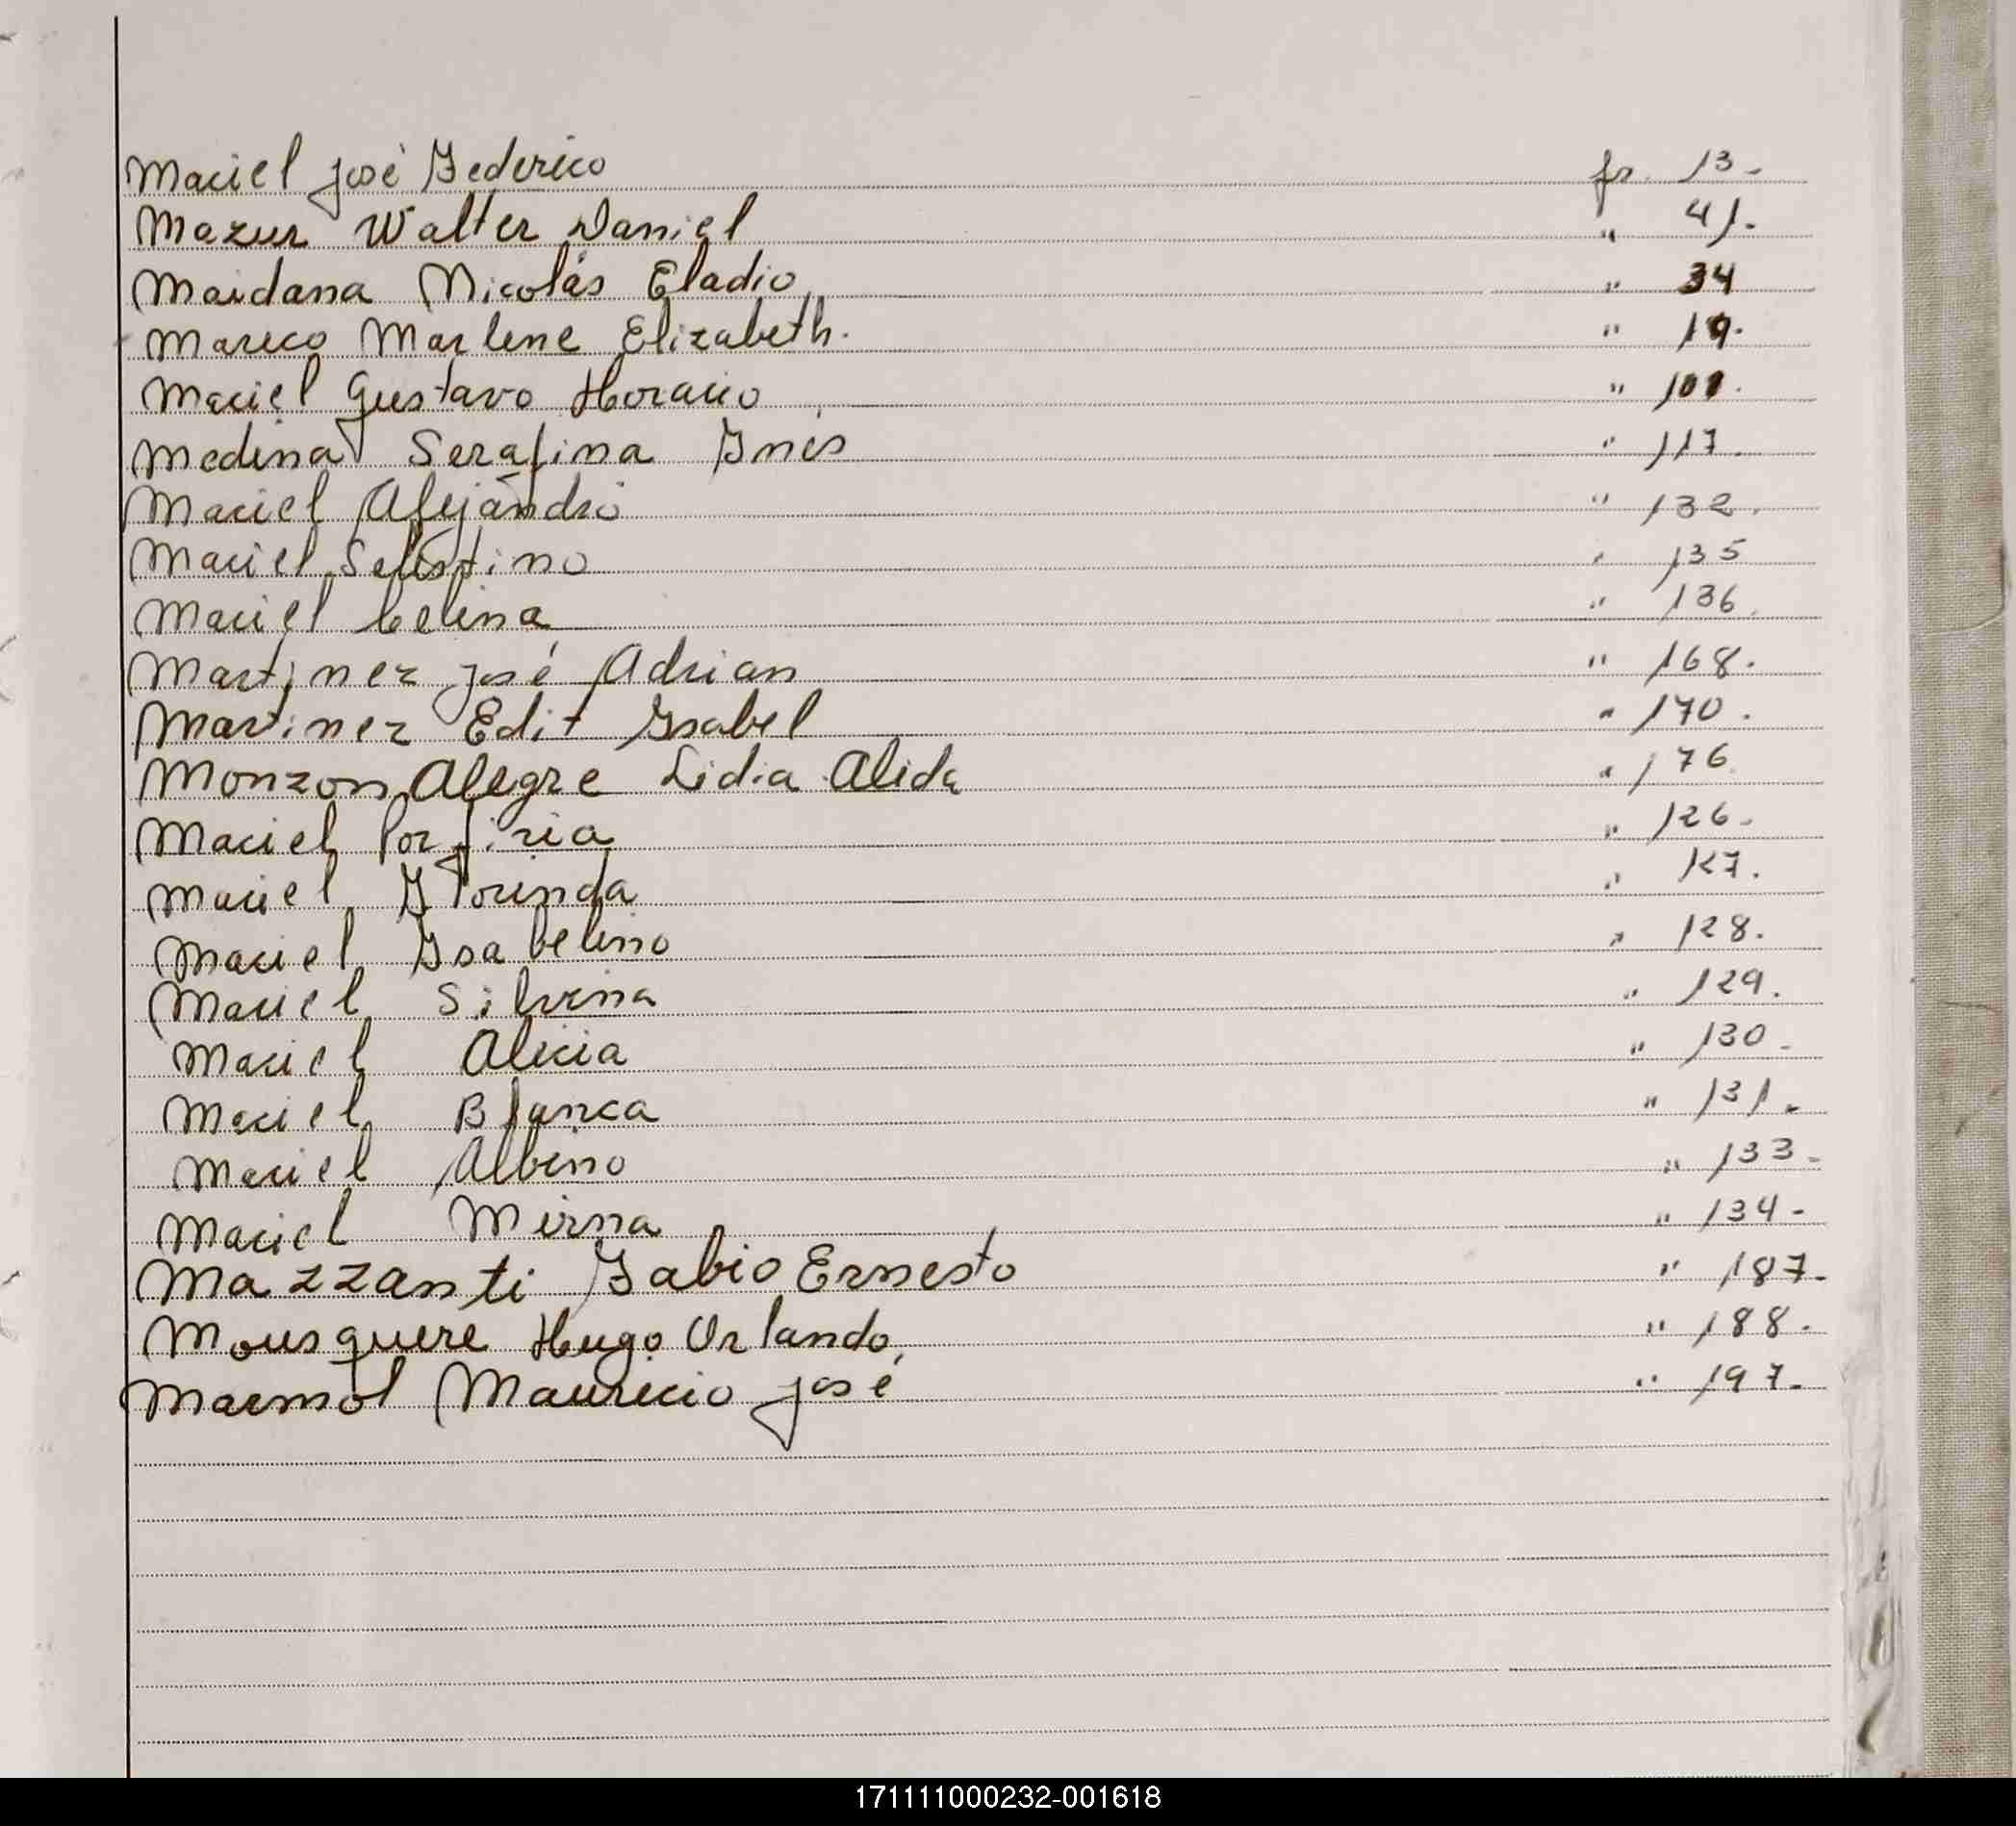 Maciel José Federico fs. 13.-
Mazur Walter Daniel " 41.-
Maidana Nicolás Eladio " 34
Mareco Marlene Elizabeth. " 19.
Maciel Gustavo Horacio "
Medina Serafina Inés " 117.
Maciel Alejandro " 132.
Maciel Selestino " 135
Maciel Celina " 136.
Martinez José Adrian " 168.
Martinez Edit Isabel " 170.
Monzon Alegre Lidia Alida " 176.
Maciel Porfiria " 126.-
Maciel Florinda " 127.
Maciel Isabelino " 128.
Maciel Silvina " 129.
Maciel Alicia " 130.-
Maciel Blanca " 131.-
Maciel Albino " 133.-
Maciel Mirna " 134-
Mazzanti Fabio Ernesto " 187.-
Mousquere Hugo Orlando. " 188.
Marmol Mauricio José " 197.-
171111000232-001618